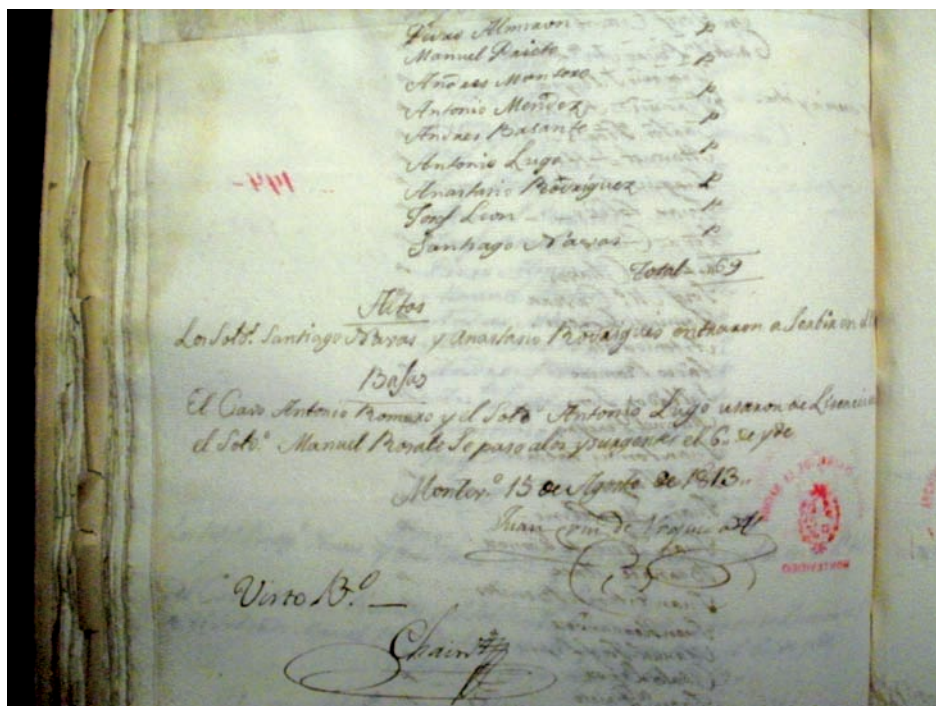 Rivas Almiron P
Manuel Prieto P
Andres Montoro P
Antonio Mendez P
Andres Basante P
Antonio Lugo P
Anastasio Rodriguez P
Josf Leon P
Santiago Navas P
Total 69
Altas
Los Soldos. Santiago Navas y Anastasio Rodrigues entraron a Serbir en
Bajas
El Cavo Antonio Romero y el Soldo Antonio Lugo usaron de Licencia
el Soldo. Manuel Rosale Se paso a los ysurgentes el 6. de yde
Montevo. 15 de Agosto de 1813.
Juan de
Visto B.o
Chain
MONTEVIDEO